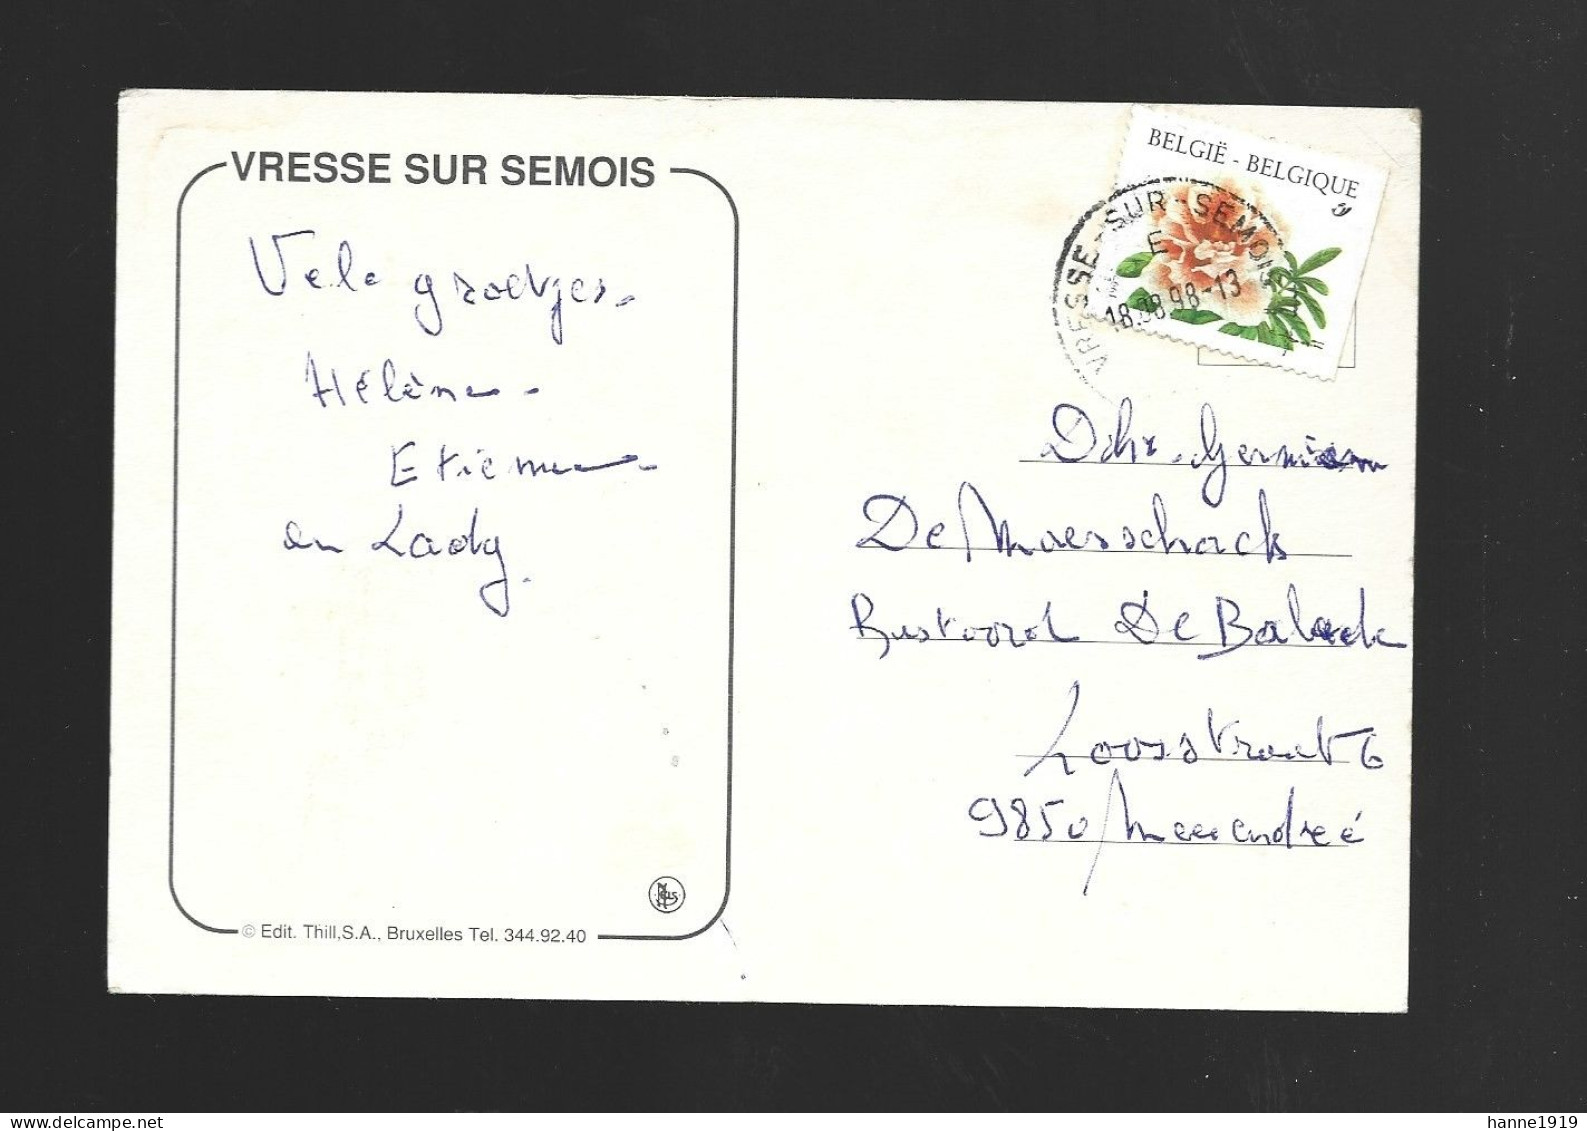 VRESSE SUR SEMOIS
Vele groetjes.
Hélène.
Etienne
en Lady.
© Edit. Thill,S.A., Bruxelles Tel. 344.92.40
NELS
BELGIË - BELGIQUE
VRESSE-SUR-SEMOIS
E
18.08.98-13
Germain
De Maesschack
Rustoord De
Loosstraat 6
9850 Meerendré
delcampe.net
hanne1919